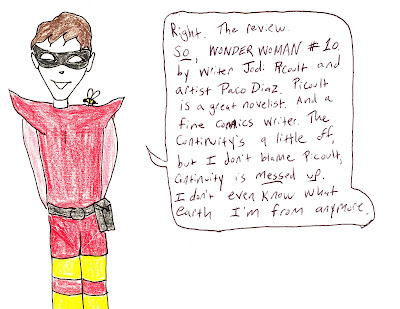 Right. The review.
So, WONDER WOMAN #10.
by writer Jodi Picoult and
artist Paco Diaz. Picoult
is a great novelist. And a
fine comics writer. The
Continuity's a little off,
but I don't blame Picoult,
Continuity is messed up.
I don't even know what
earth I'm from anymore.